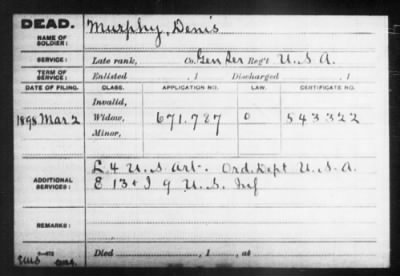 DEAD.
NAME OF SOLDIER:
Murphy, Denis
SERVICE:
Late rank, Co. Gen Ser Reg't U.S.A.
TERM OF SERVICE:
Enlisted , 1 Discharged , 1
DATE OF FILING. CLASS. APPLICATION NO. LAW. CERTIFICATE NO.
Invalid,
1898 Mar 2 Widow, 671.787 0 543322
Minor,
ADDITIONAL SERVICES:
L 4 U.S Art. Ord. Kept U.S.A
E 13 & I 9 U.S. Inf
REMARKS:
Died , 1 , at